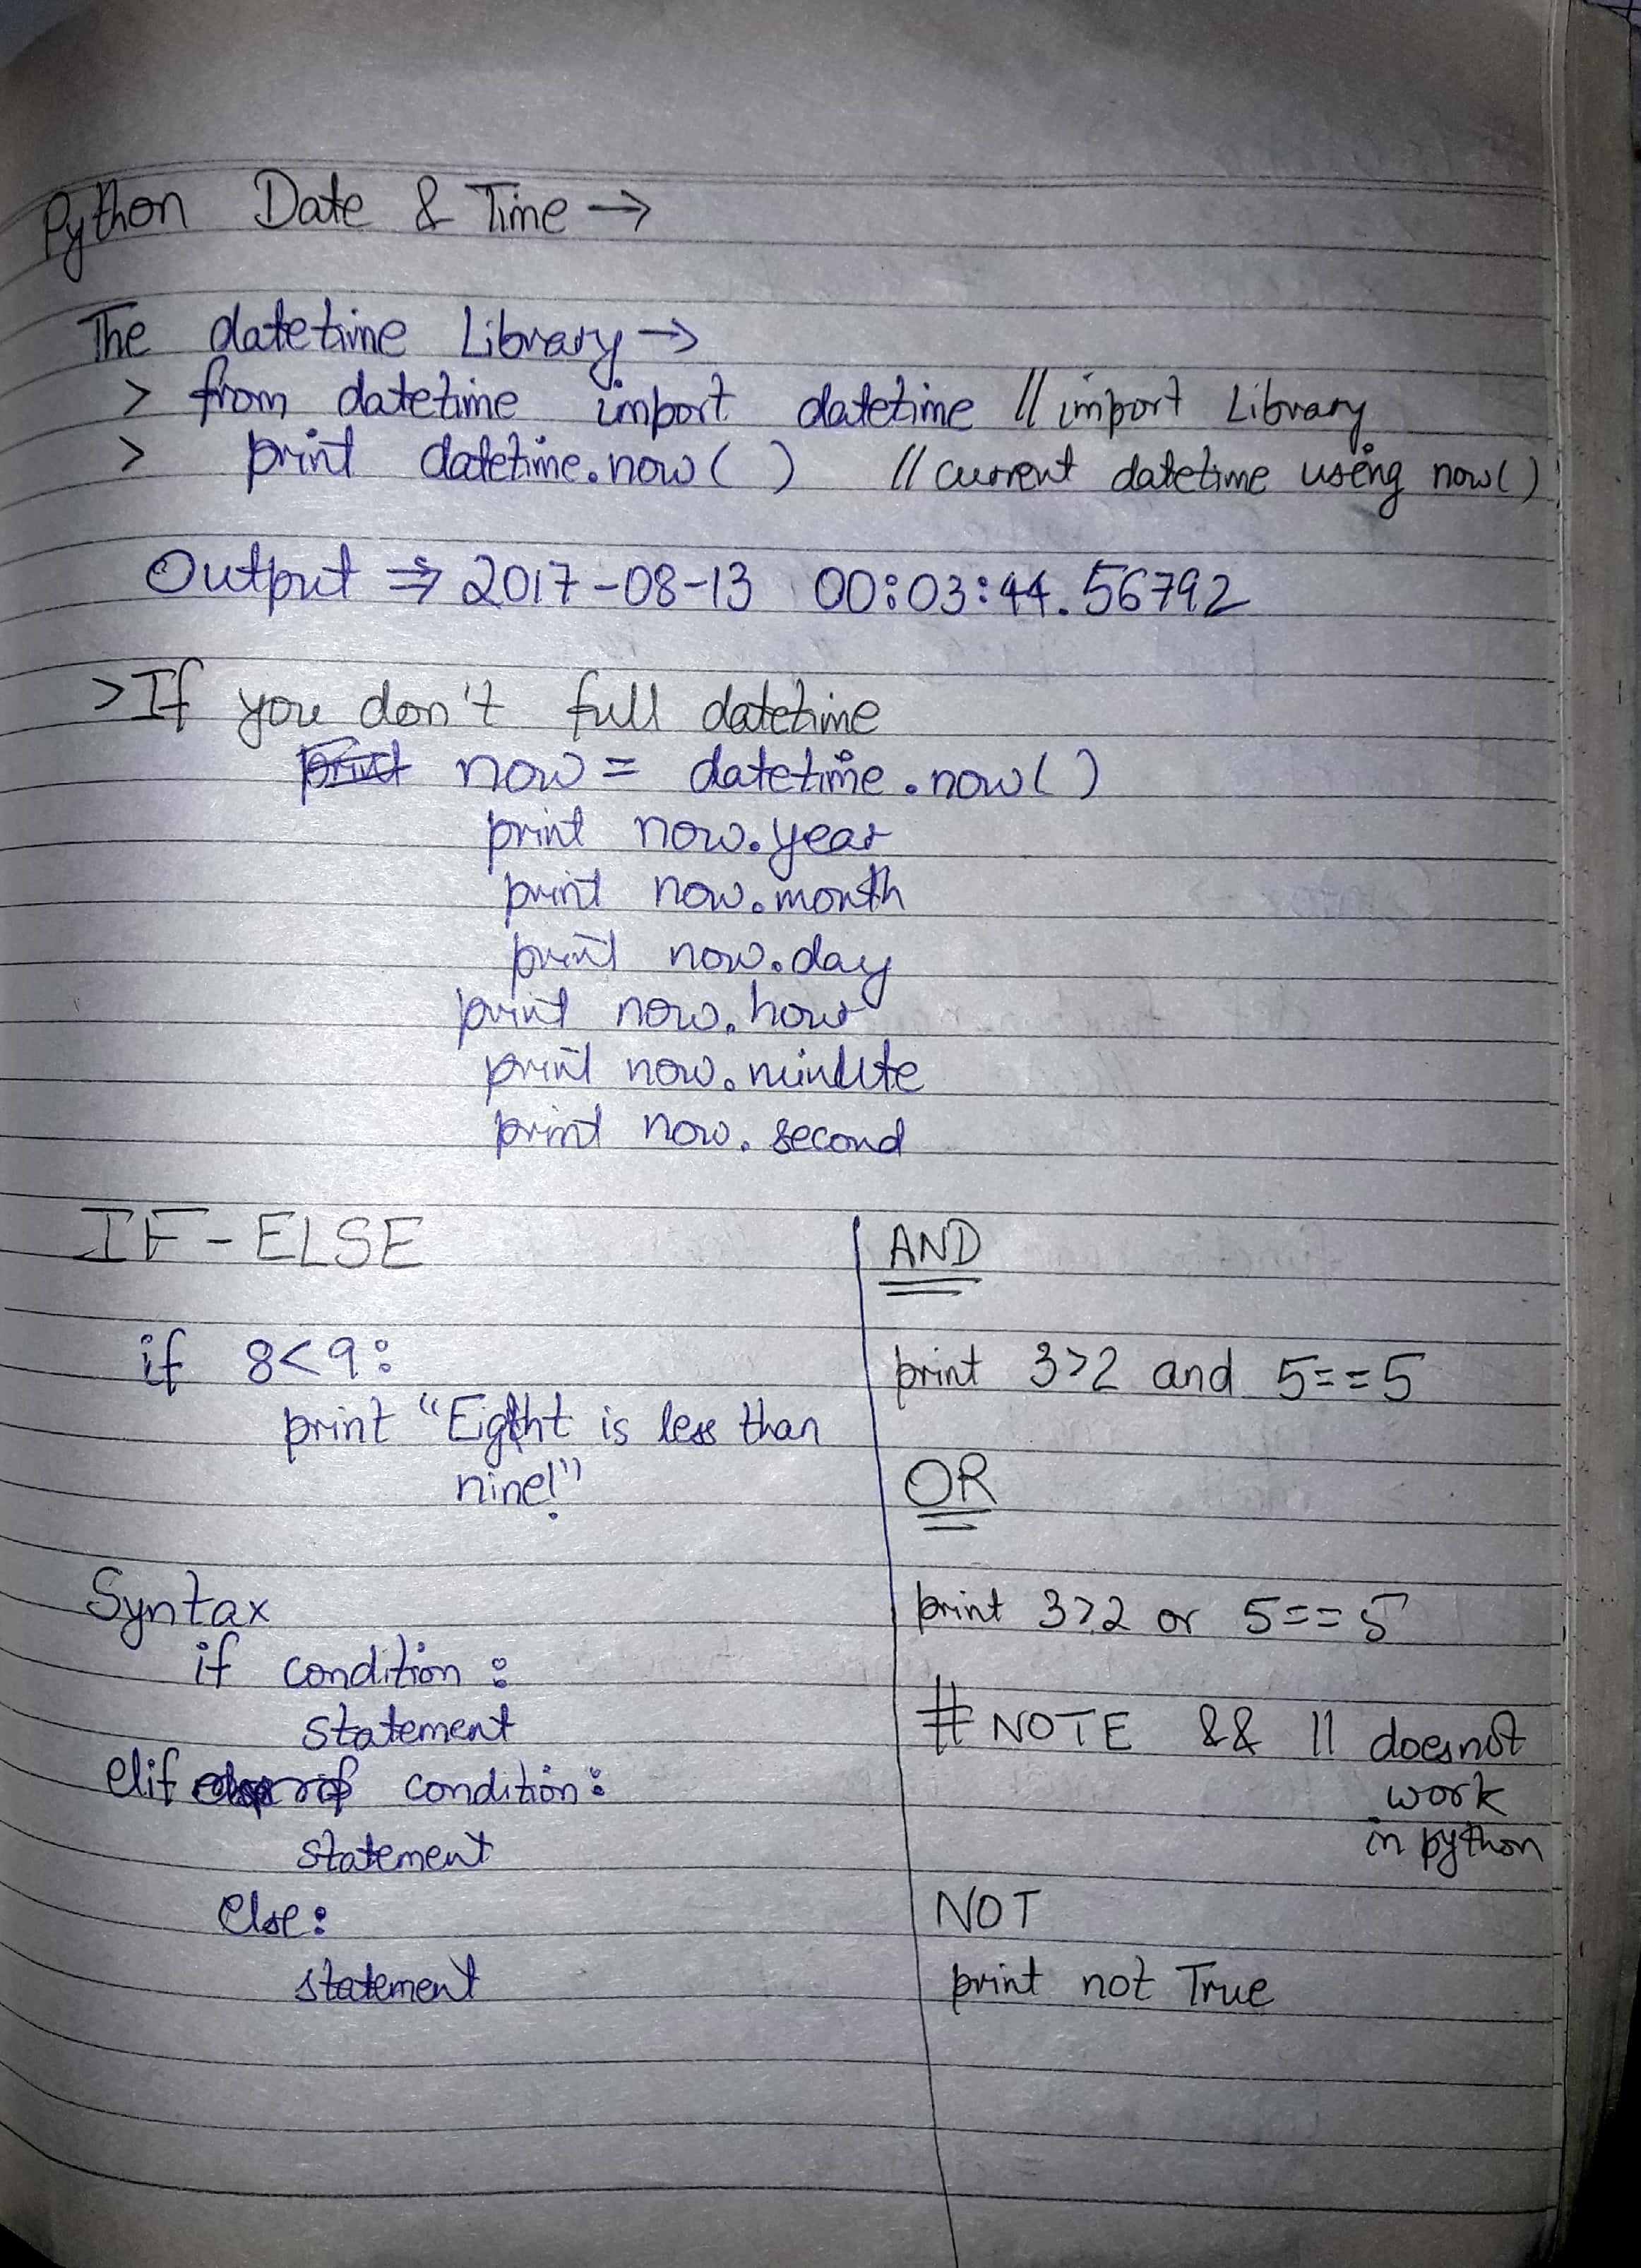 Python Date & Time →
The datetime Library →
> from datetime import datetime // import Library
> print datetime.now() // current datetime using now()
Output ⇒ 2017-08-13 00:03:44.56792
> If you don't full datetime
now = datetime.now()
print now.year
print now.month
print now.day
print now.hour
print now.minute
print now.second
IF-ELSE
if 8<9:
print "Eight is less than
nine!"
Syntax
if condition:
statement
elif condition:
statement
else:
statement
AND
print 3>2 and 5==5
OR
print 3>2 or 5==5
# NOTE && || doesnot
work
in python
NOT
print not True